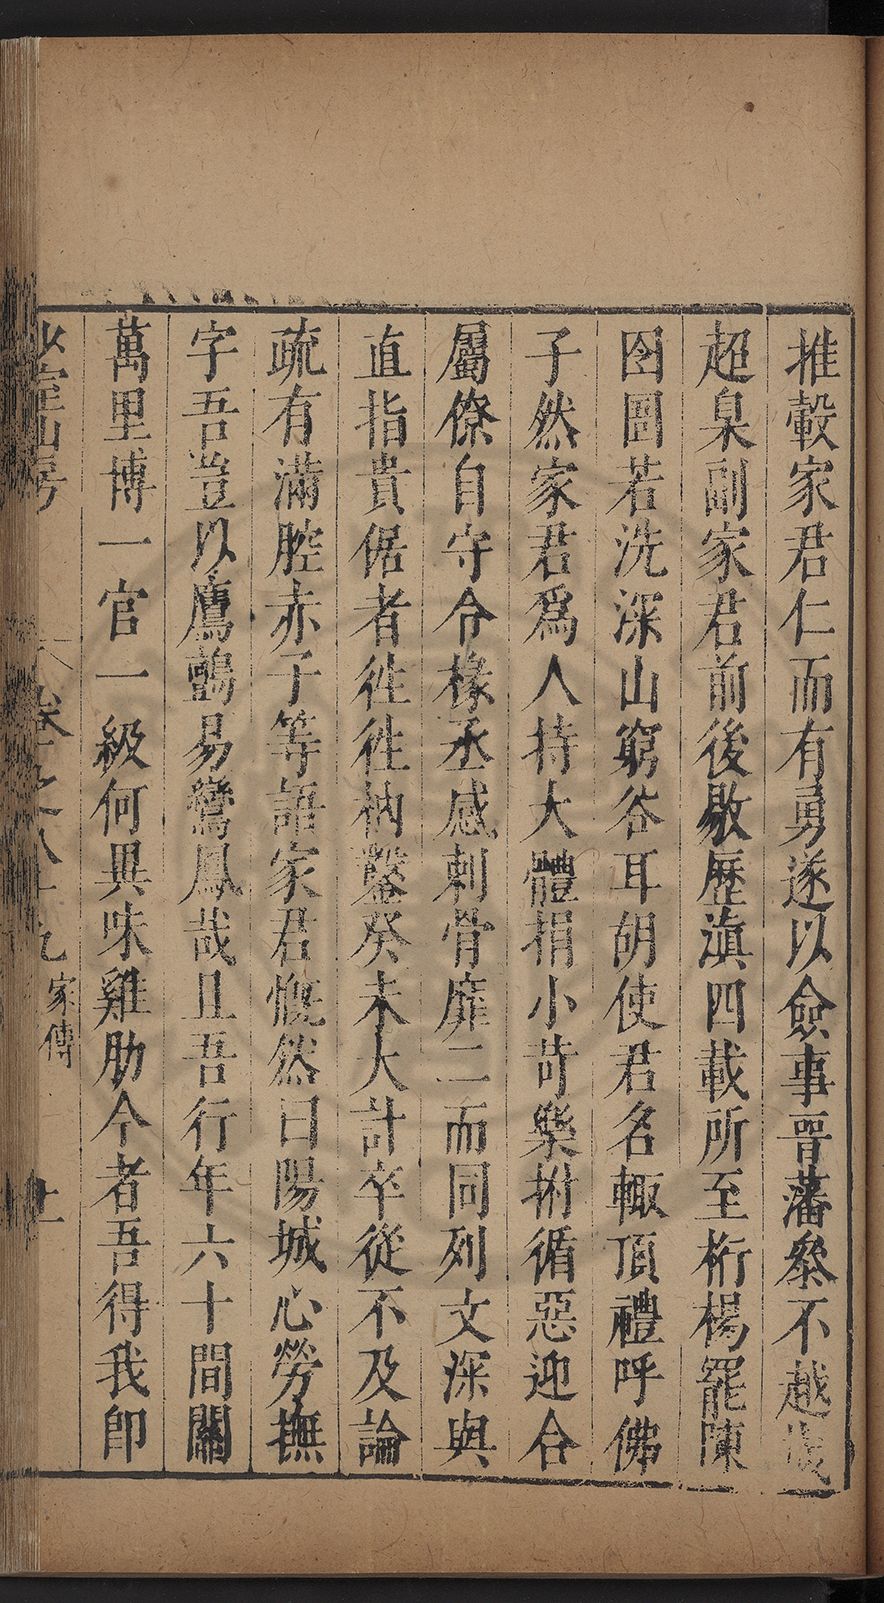 推轂家君仁而有勇遂以僉事晉藩叅不越歲
超臬副家君前後敭歷滇四載所至桁楊罷陳
囹圄若洗深山窮谷耳胡使君名輙頂禮呼佛
子然家君爲人持大體捐小苛樂拊循惡迎合
屬僚自守令椽丞感刺骨靡二而同列文深與
直指貴倨者徃徃枘鑿癸未大計卒從不及論
疏有滿腔赤子等語家君慨然曰陽城心勞撫
字吾豈以鷹鸇易鸞鳳哉且吾行年六十間關
萬里博一官一級何異味雞肋今者吾得我卽
少室山房 卷之八十九 家傳